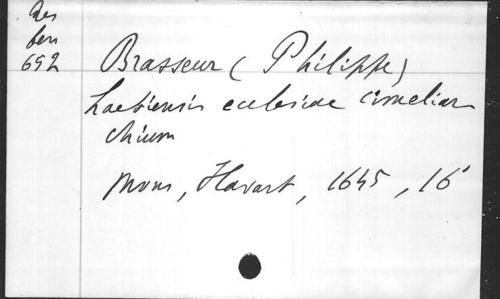 Res
ben
692
Brasseur (Philippe)
Laetiensis ecclesiae cimeliar
chium
Mons, Havart, 1645, 16°